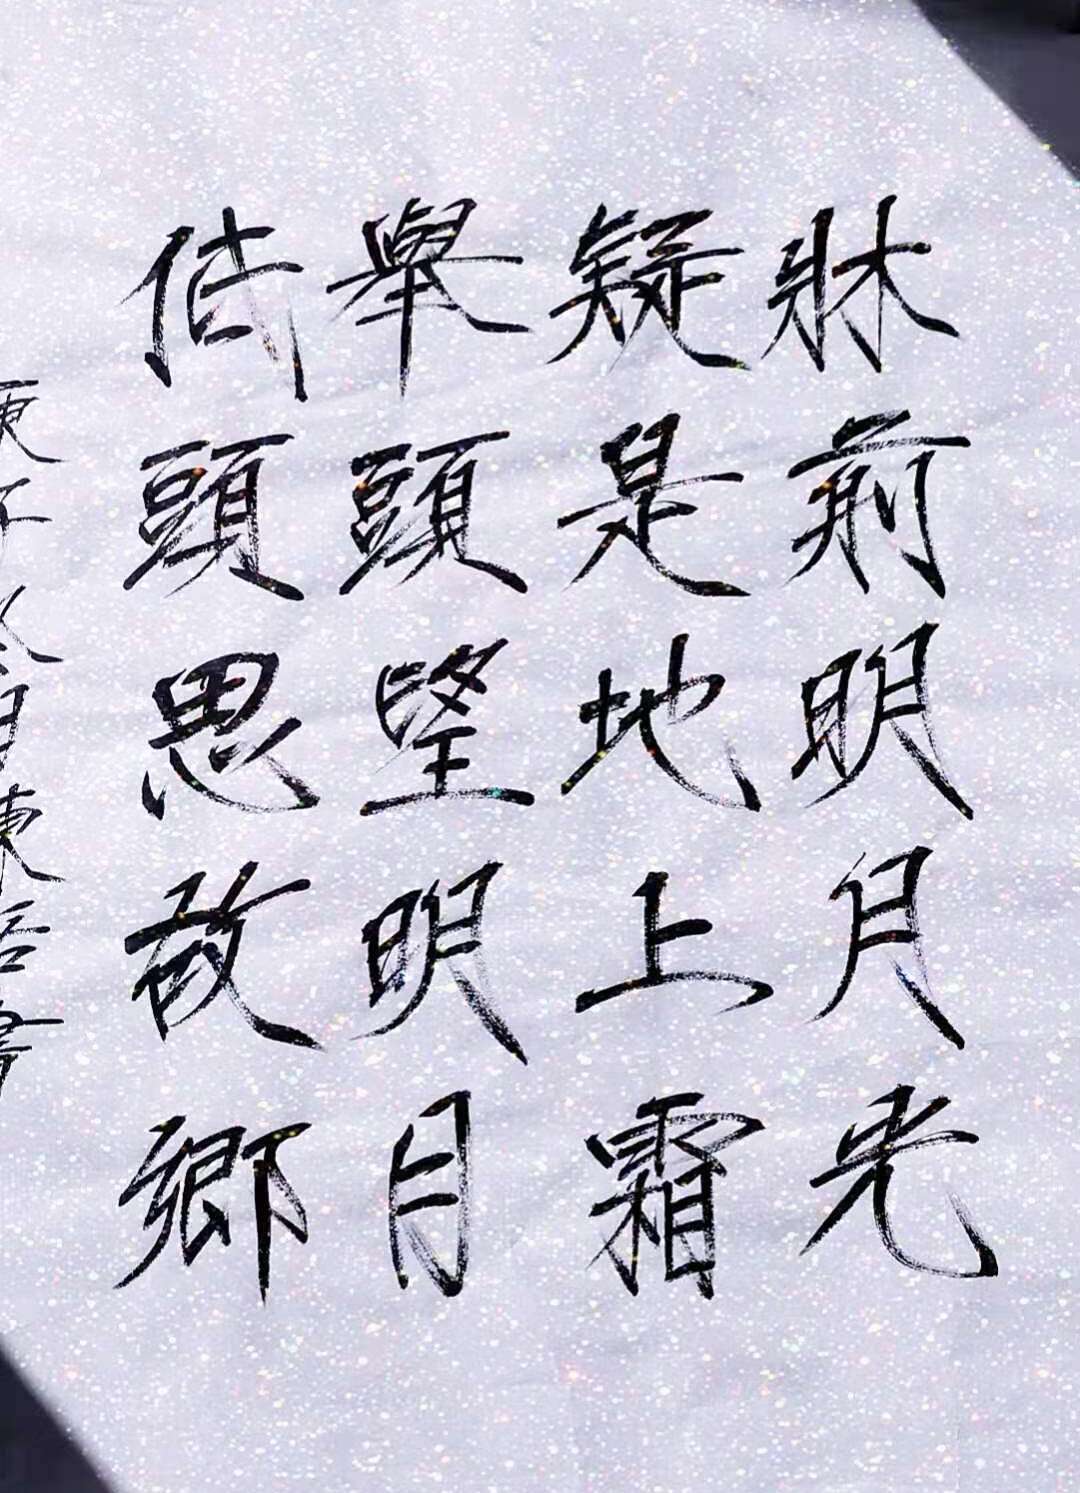 牀前明月光
疑是地上霜
舉頭望明月
低頭思故鄉
庚子